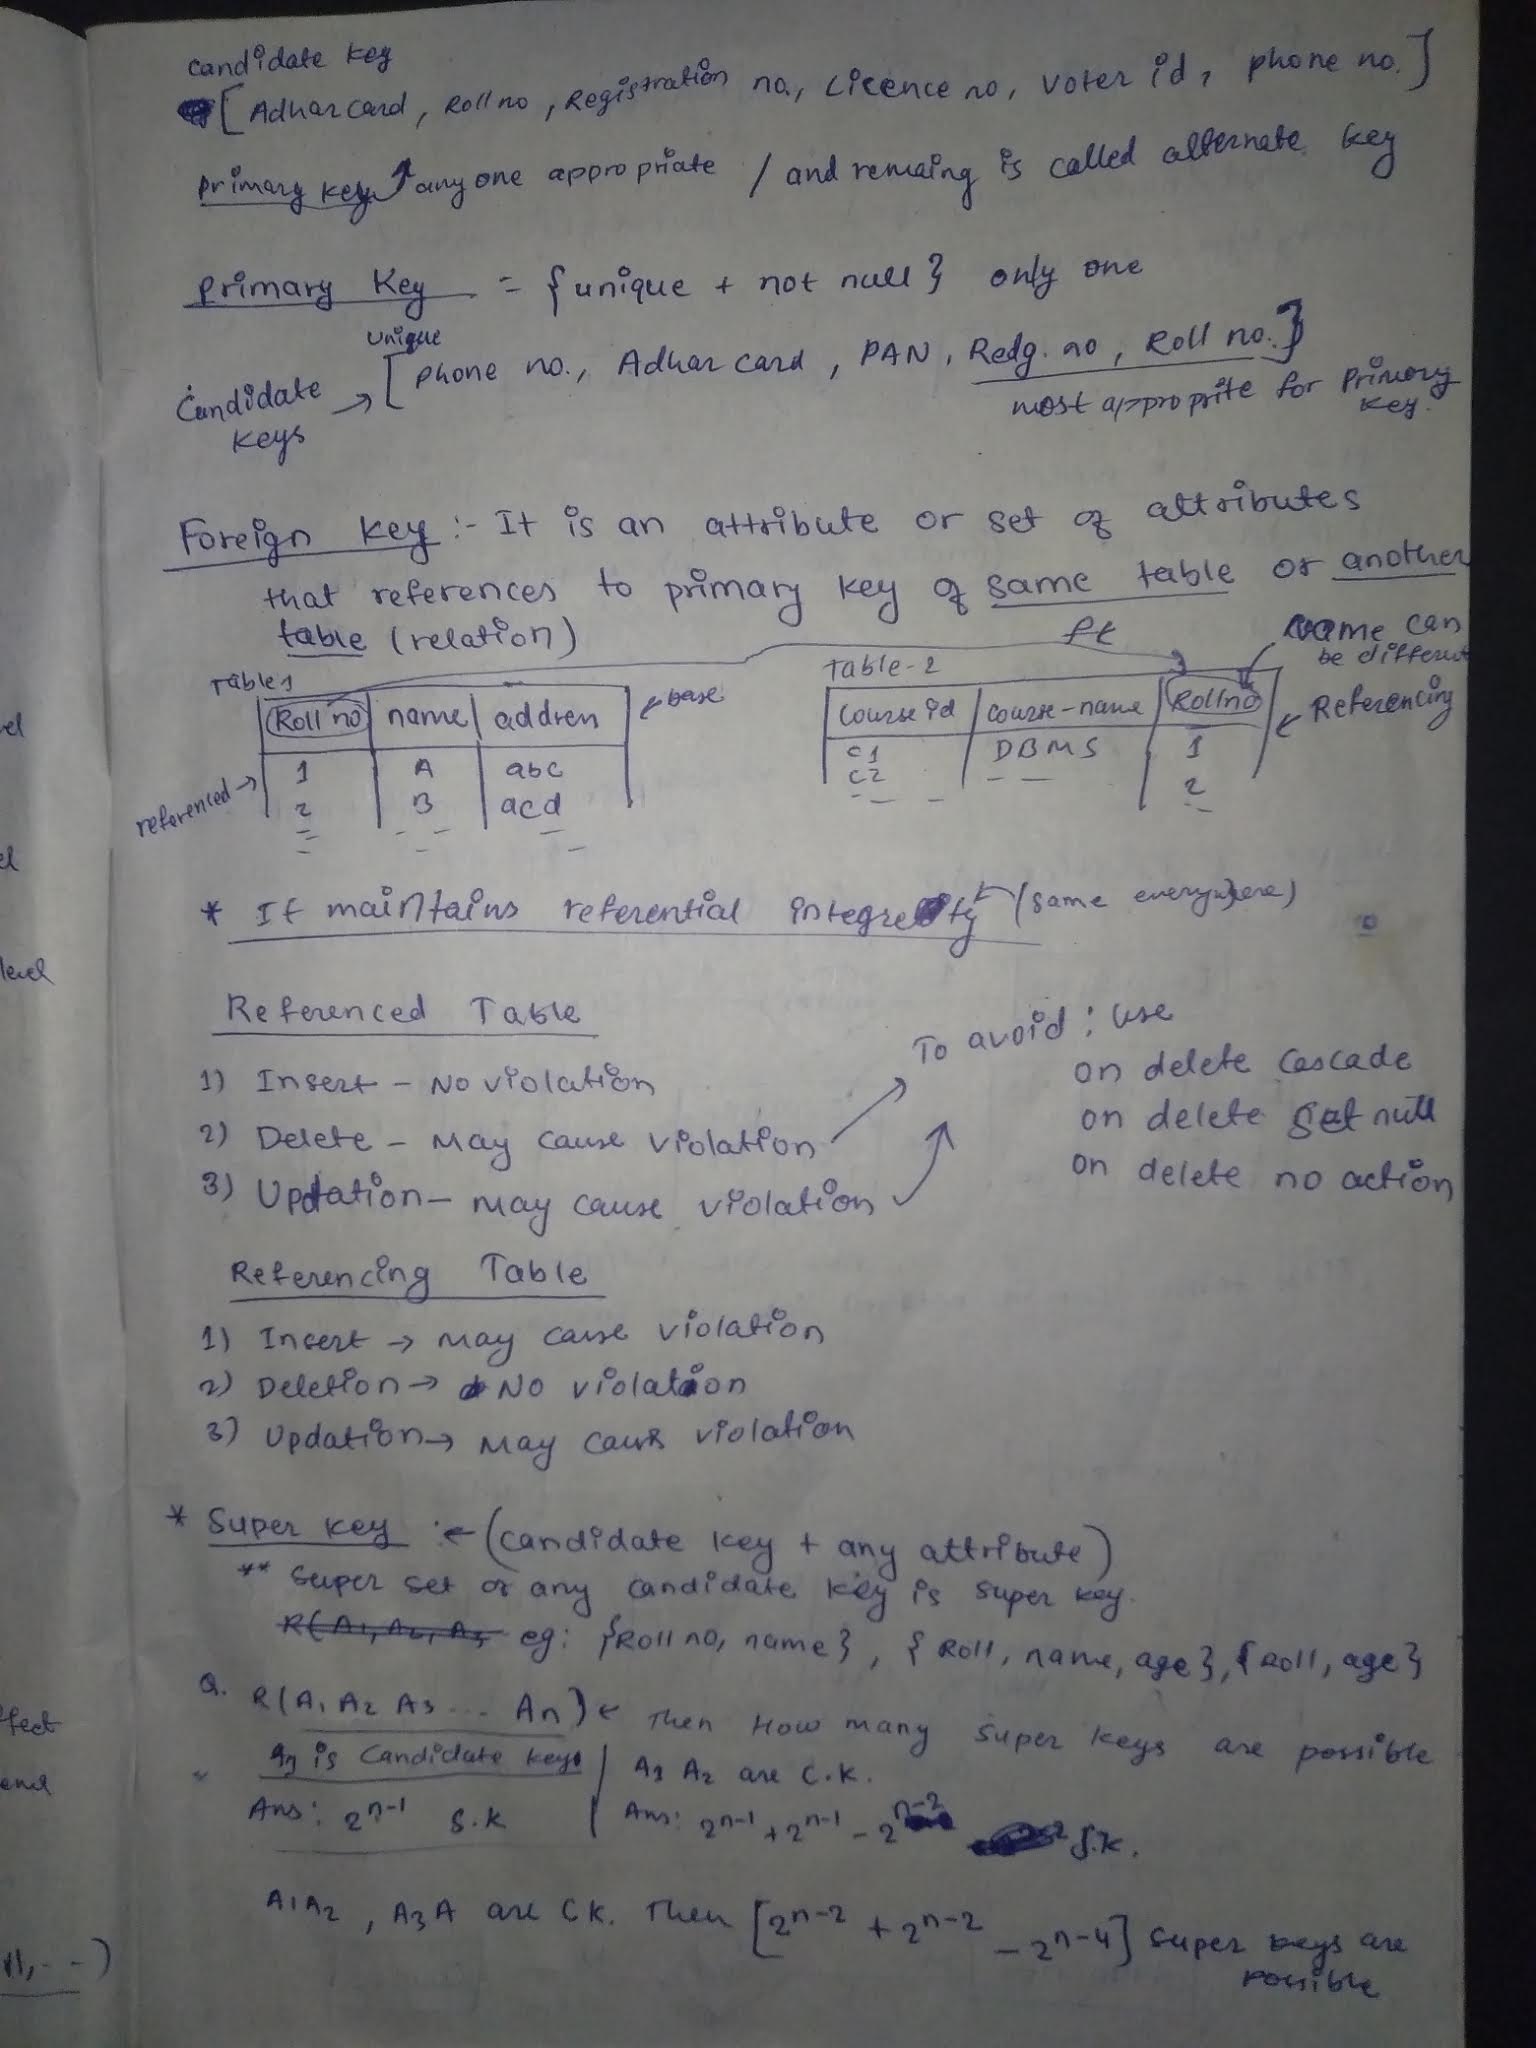 candidate key
[ Adhar card, Roll no, Registration no., Licence no, voter id, phone no. ]
primary key any one appropriate / and remaing is called alternate key
primary Key = {unique + not null} only one
unique
Candidate keys → [ phone no., Adhar card, PAN, Redg. no, Roll no. }
most approprite for primary key.
Foreign key :- It is an attribute or set of attributes
that references to primary key of same table or another
table (relation)
fk
name can be different
Table 1
Roll no | name | addren
← base
1 A abc
2 B acd
referenced →
Table-2
Course id | course-name | Rollno
← Referencing
C1 DBMS 1
C2 -- 2
* It maintains referential integrety ← (same everywhere)
Referenced Table
1) Insert - No violation
2) Delete - May cause violation
3) Updtation - may cause violation
To avoid : use
on delete cascade
on delete set null
on delete no action
Referencing Table
1) Insert → may cause violation
2) Deletion → No violation
3) Updation → May caus violation
* Super key :- (candidate key + any attribute)
** Super set of any candidate key is super key.
R(A1, A2, A3 eg: {Roll no, name}, { Roll, name, age}, {Roll, age}
Q. R(A1 A2 A3 ... An) ← Then How many super keys are possible
is Candidate keys | A1 A2 are C.K.
Ans: 2^n-1 S.K | Ans: 2^n-1 + 2^n-1 - 2^n-2 S.K.
A1A2, A3A are CK. Then [2^n-2 + 2^n-2 - 2^n-4] super keys are possible
level
ffect